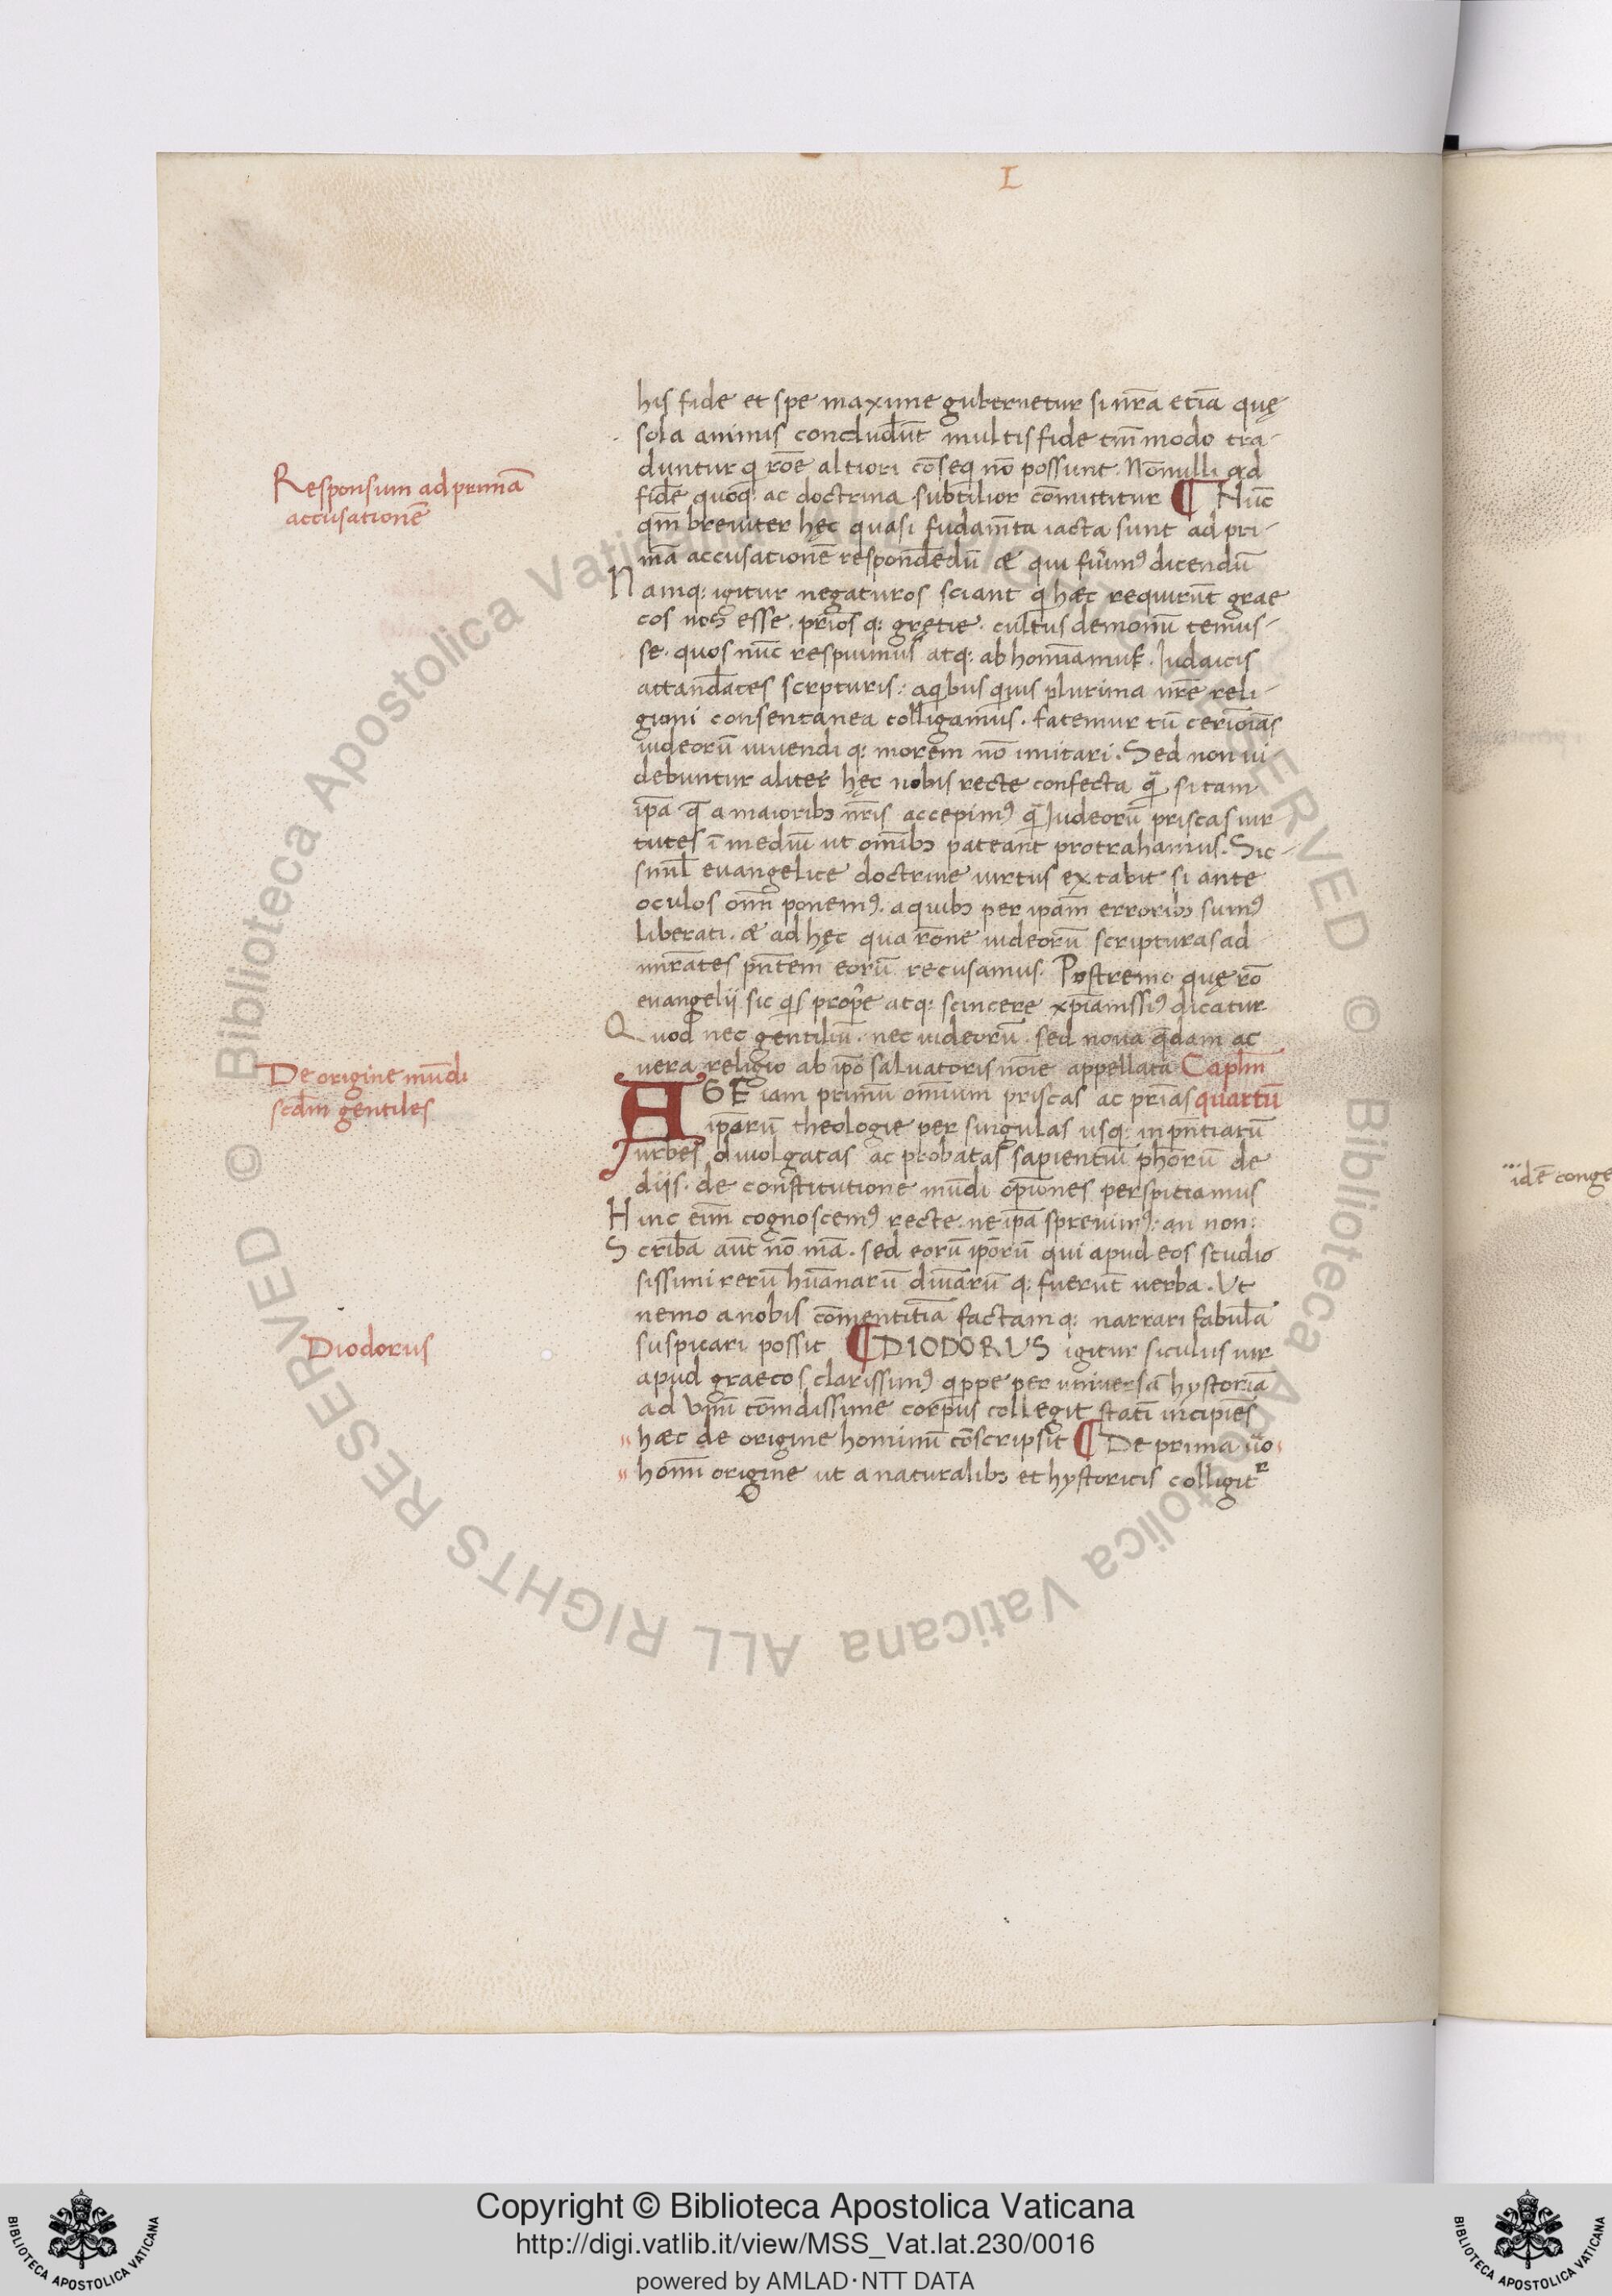 I
his fide et spe maxime gubernetur si nr̄a etiā quę
sola animis concludūt multis fide tm̄modo tra-
duntur q rōe altiori cōseq nō possunt. Nōnulli ad
fidē quoq: ac doctrina subtilior cōmittitur ¶ Nūc
qm̄ breuiter hęc quasi fūdam̄ta iacta sunt ad pri-
mā accusationē respondēdū æ qui fuīmꝰ dicendū
Namq: igitur negaturos sciant q hæc requirūt grae
cos nos esse. prīos q: gręcie. cultus demonū tenuis-
se. quos nūc respuimus atq: abhomīamur. Iudaicis
attandātes scrpturis: aqibus quis plurima nrē reli-
gioni consentanea colligamus. fatemur tn̄ cerīoīas
iudeorū uiuendi q: morem nō imitari. Sed non ui
debuntur aliter hęc nobis recte confecta q̄ si tam
ipā q̄ a maioribꝫ nr̄is accepimꝰ q̄ Iudeorū priscas uir
tutes ī mediū ut om̄ibꝫ pateant protrahamus. Sic-
simĺ euangelice doctrine uirtus extabit si ante
oculos om̄i ponemꝰ. aquibꝫ per ipam̄ erroribꝫ sumꝰ
liberati. æ ad hęc qua rōne iudeorū scripturas ad
mirātes pn̄tem eorū recusamus. Postremo quę rō
euangelij sic qs propē atq: scincere xpīanissīꝰ dicatur
Quod nec gentiliū. nec iudeorū. sed noua q̄dam ac
uera religio ab ipō saluatoris noīe appellata Caplm̄
AGE iam primū omnium priscas ac prīas quartū
ipārū theologie per singulas usq: in pn̄tiarū
urbes diuolgatas ac probatas sapientiū phōrū de
diis. de constitutione mūdi opīones perspiciamus
Hinc eim̄ cognoscemꝰ recte. ne ipā spreuimꝰ: an non:
Scribā aut̄ nō mā. sed eorū ipōrū qui apud eos studio
sissimi rerū hūanarū diuīarū q: fuerūt uerba. Ut
nemo a nobis cōmentitiā factam q: narrari fabulā
suspicari possit ¶ DIODORUS igitur siculus uir
apud graecos clarissimꝰ qppe per uniuersā hystoriā
ad Unū cōmdissime corpus collegit statī incipiēs
hæc de origine hominū cōscripsit ¶ De prima ūo
homī origine ut a naturalibꝫ et hystoricis colligitʳ
Responsum ad primā
accusationē
De origine mūdi
scdm̄ gentiles
Diodorus
idē conge
Copyright © Biblioteca Apostolica Vaticana
http://digi.vatlib.it/view/MSS_Vat.lat.230/0016
powered by AMLAD·NTT DATA
BIBLIOTECA APOSTOLICA VATICANA
BIBLIOTECA APOSTOLICA VATICANA
© Biblioteca Apostolica Vaticana ALL RIGHTS RESERVED
© Biblioteca Apostolica Vaticana ALL RIGHTS RESERVED